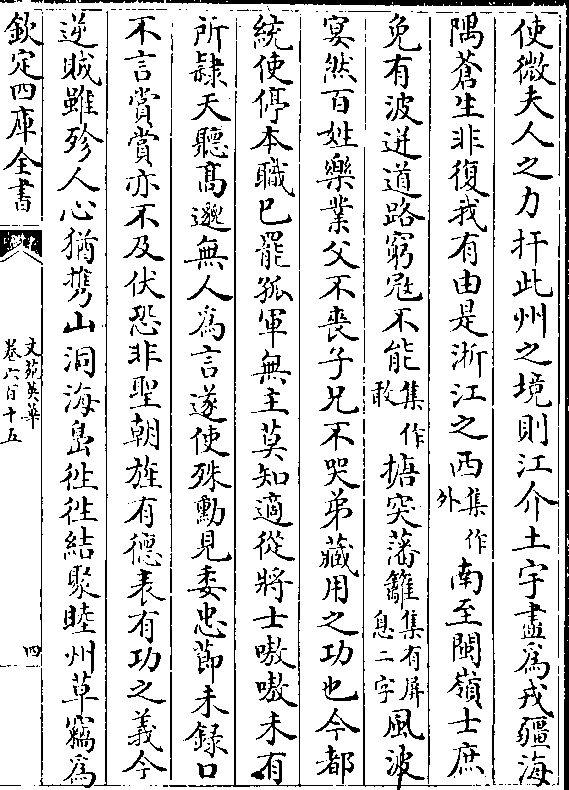 使微夫人之力扞此州之境則江介土宇盡為戎疆海
隅蒼生非復我有由是浙江之西集作外南至閩嶺士庶
免有波迸道路窮寇不能集作敢搪突藩籬集有屏息二字風波
寞然百姓樂業父不喪子兄不哭弟藏用之功也今都
統使停本職已罷孤軍無主莫知適從將士嗷嗷未有
所隸天聽髙邈無人為言遂使殊勳見委忠節未録口
不言賞賞亦不及伏恐非聖朝旌有德表有功之義今
逆賊雖殄人心猶携山洞海島徃徃結聚睦州草竊為
欽定四庫全書
文苑英華
卷六百十五
四